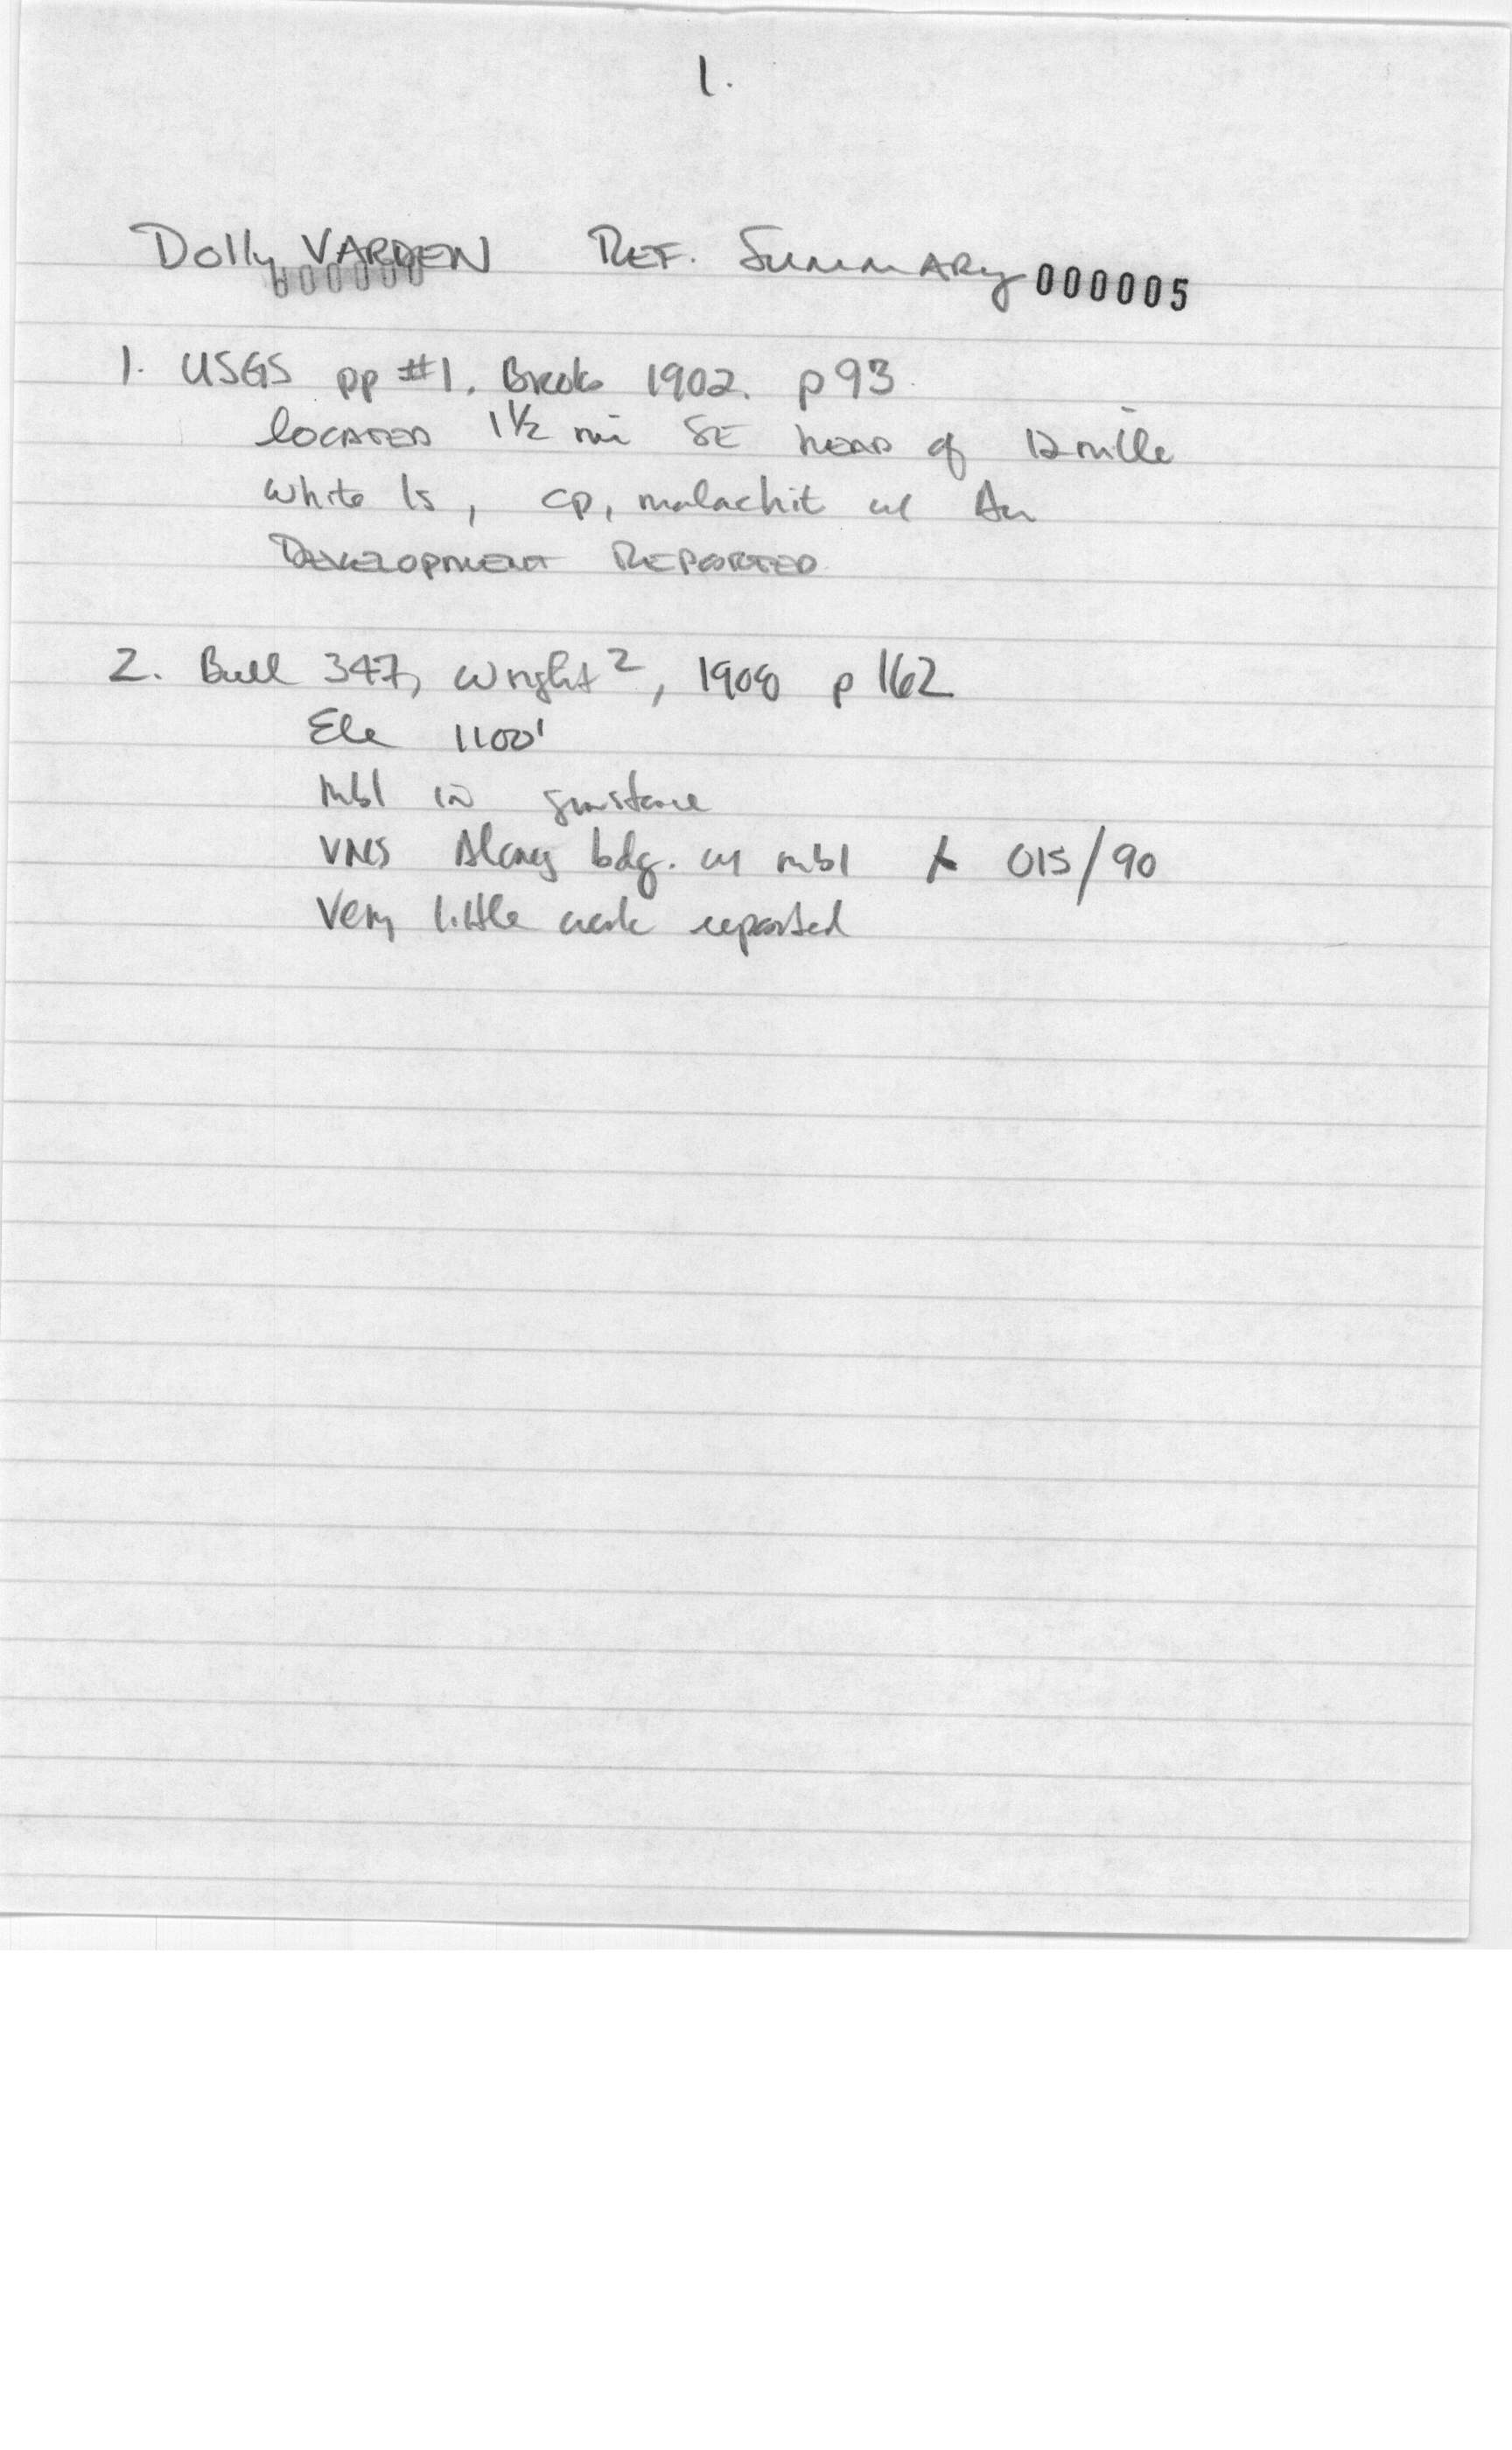 1.
Dolly VARDEN REF. Summary 000005
000000
1. USGS pp #1. Brooks 1902. p 93
located 1 1/2 mi SE head of 12 mile
white ls, cp, malachit w/ Au
Development Reported
2. Bull 347, Wright², 1908 p 162
Ele 1100'
mbl in gnstone
VNS Along bdg. w/ mbl 015/90
Very little work reported